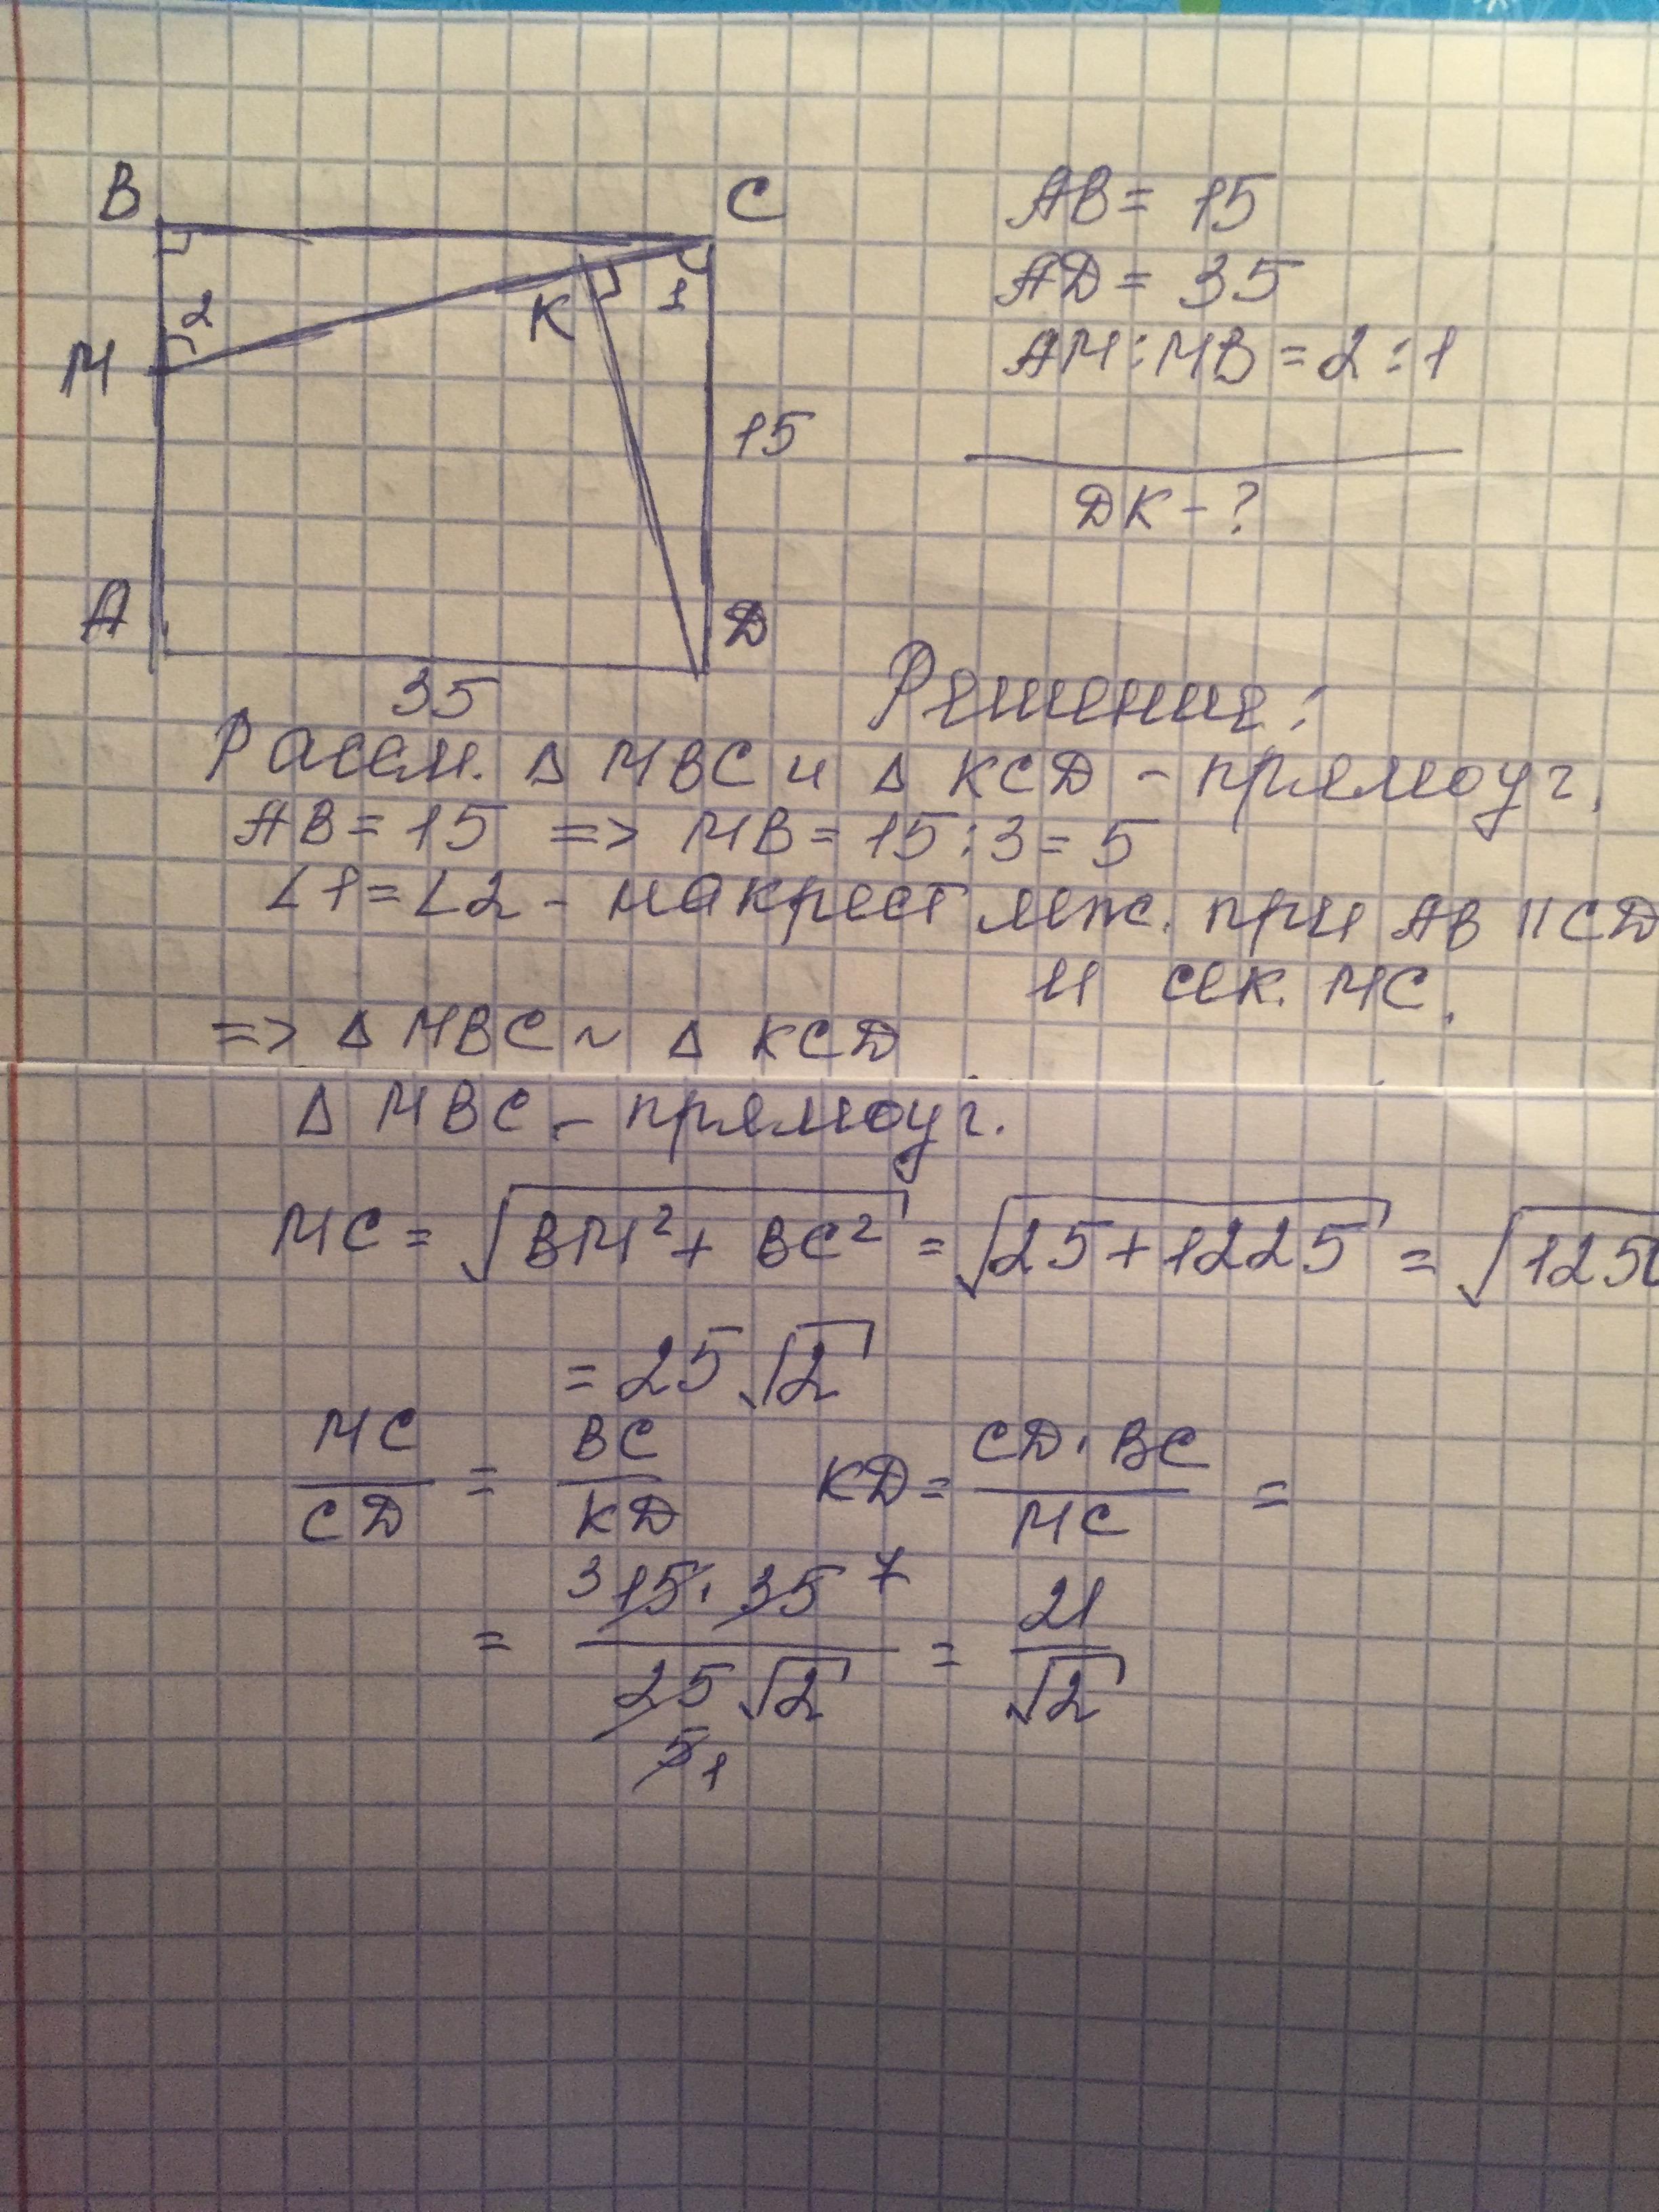 B
C
2
K
1
M
15
A
D
35
AB = 15
AD = 35
AM : MB = 2 : 1
DK - ?
Решение:
Рассм. Δ MBC и Δ KCD - прямоуг.
AB = 15 => MB = 15 : 3 = 5
∠1 = ∠2 - накрест леж. при AB || CD
и сек. MC.
=> Δ MBC ~ Δ KCD
Δ MBC - прямоуг.
MC = √(BM² + BC²) = √(25 + 1225) = √1250
= 25√2
MC/CD = BC/KD KD = CD · BC/MC =
3 7
= 15 · 35/25√2 = 21/√2
5 1